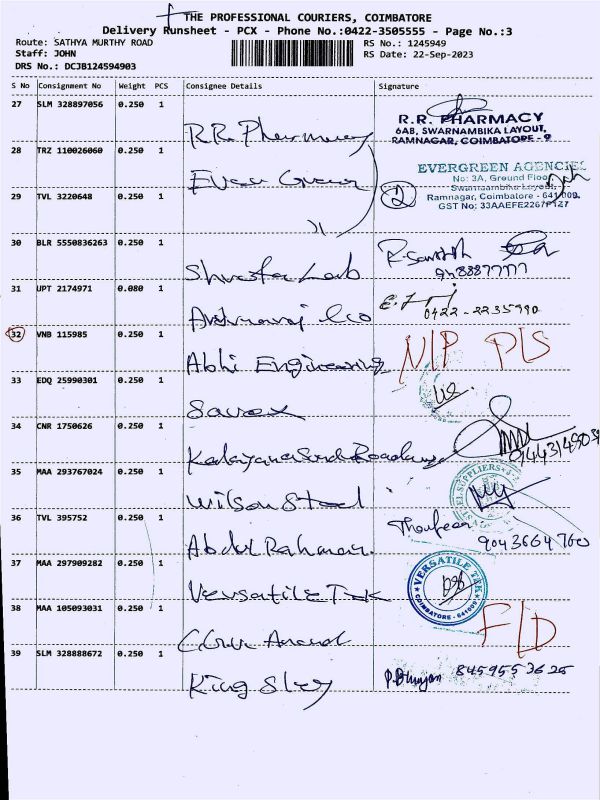 THE PROFESSIONAL COURIERS, COIMBATORE
Delivery Runsheet - PCX - Phone No.:0422-3505555 - Page No.:3
Route: SATHYA MURTHY ROAD
Staff: JOHN
DRS No.: DCJB124594903
RS No.: 1245949
RS Date: 22-Sep-2023
S No Consignment No Weight PCS Consignee Details Signature
27 SLM 328897056 0.250 1
R.R. Pharmacy
R.R. PHARMACY
6AB, SWARNAMBIKA LAYOUT,
RAMNAGAR, COIMBATORE - 9
28 TRZ 110026060 0.250 1
Ever Green
EVERGREEN AGENCIES
No: 3A, Ground Floor
Swarnaambika Layout,
Ramnagar, Coimbatore - 641 009.
GST No: 33AAEFE2267P1Z7
29 TVL 3220648 0.250 1
2
30 BLR 5550836263 0.250 1
Lab
31 UPT 2174971 0.080 1
0422 - 2235990
32 VNB 115985 0.250 1
Abhi Engineering
N/P PLS
33 EDQ 25990301 0.250 1
Savex
34 CNR 1750626 0.250 1
35 MAA 293767024 0.250 1
Wilson Steel
36 TVL 395752 0.250 1
Abdul Rahman
37 MAA 297909282 0.250 1
Versatile Tek
VERSATILE TEK
COIMBATORE - 641009
38 MAA 105093031 0.250 1
Anand
F/D
39 SLM 328888672 0.250 1
King Sley